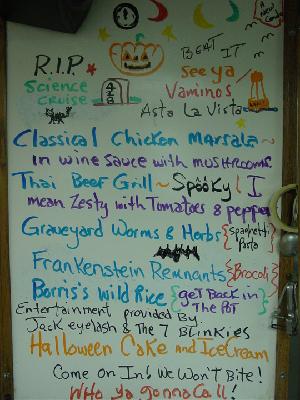 A New Comet
BEAT IT
R.I.P.
See ya
Science
Cruise
Vaminos
Asta La Vista
Classical Chicken Marsala ~
in wine sauce with mushrooms
Thai Beef Grill ~ Spooky! I
mean Zesty with Tomatoes & pepper
Graveyard Worms & Herbs {spaghetti
Pasta}
Frankenstein Remnants {Brocoli}
Borris's Wild Rice {get Back in
The Pot}
Entertainment provided By
Jack eyelash & The 7 Blinkies
Halloween Cake and IceCream
Come On In! We Won't Bite!
Who ya gonna Call!